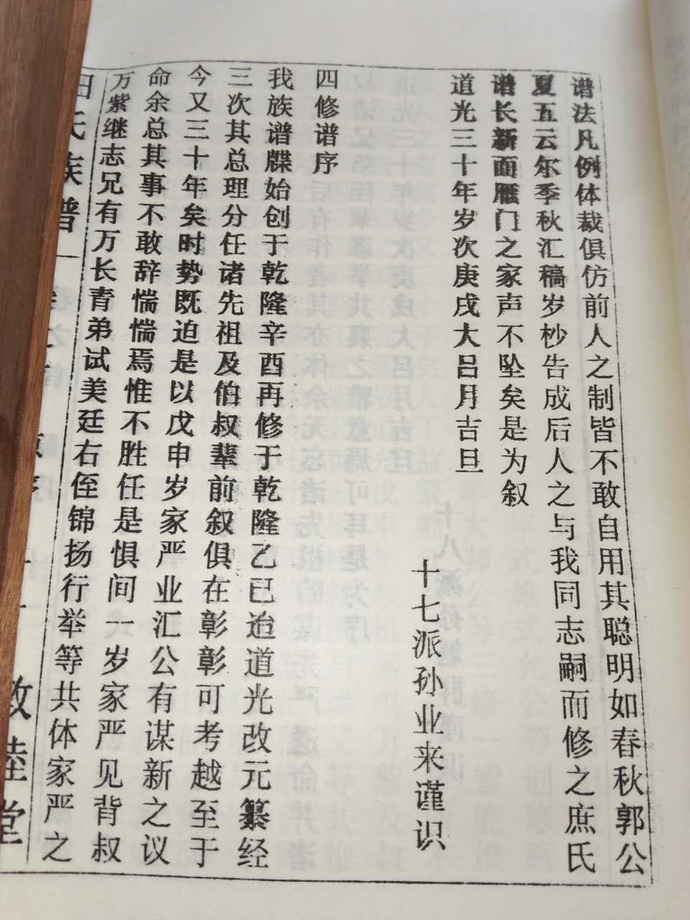 谱法凡例体裁俱仿前人之制皆不敢自用其聪明如春秋郭公
夏五云尔季秋汇稿岁杪告成后人之与我同志嗣而修之庶氏
谱长新面雁门之家声不坠矣是为叙
道光三十年岁次庚戌大吕月吉旦
十七派孙业来谨识
四修谱序
我族谱牒始创于乾隆辛酉再修于乾隆乙巳迨道光改元纂经
三次其总理分任诸先祖及伯叔辈前叙俱在彰彰可考越至于
今又三十年矣时势既迫是以戊申岁家严业汇公有谋新之议
命余总其事不敢辞惴惴焉惟不胜任是惧间一岁家严见背叔
万紫继志兄有万长青弟试美廷右侄锦扬行举等共体家严之
田氏族谱 敦睦堂